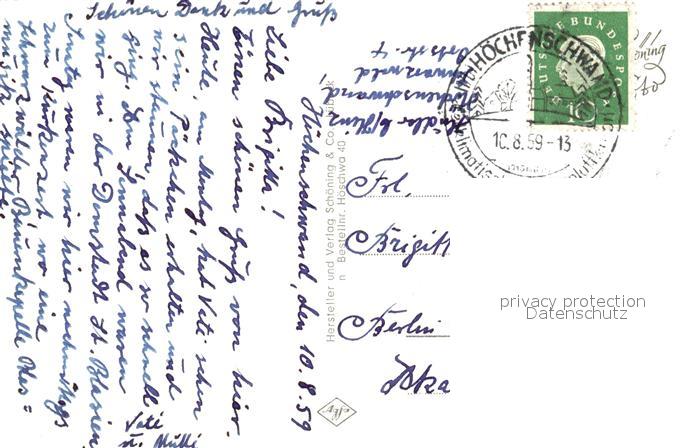 Höchenschwand, den 10.8.59
Liebe Brigitte!
Einen schönen Gruß von hier.
Heute am Montag, hat Vati schon
sein Päckchen erhalten und
wir staunen, daß es so schnell
ging. Am Sonnabend waren
wir in der Domstadt St. Blasien
wenn wir hier nachmittags
zum Kurkonzert, wo eine
Schwarzwälder Bauernkapelle Blas=
musik spielte.
Vati
u. Mutti
Schönen Dank und Gruß
Höchenschwand
Schwarzwald
Hersteller und Verlag Schöning & Co., Lübeck
Bestellnr. Höschwa 40
DEUTSCHE BUNDESPOST
10
HÖCHENSCHWAND
10.8.59-13
Frl.
Brigitt
Berlin
privacy protection
Datenschutz